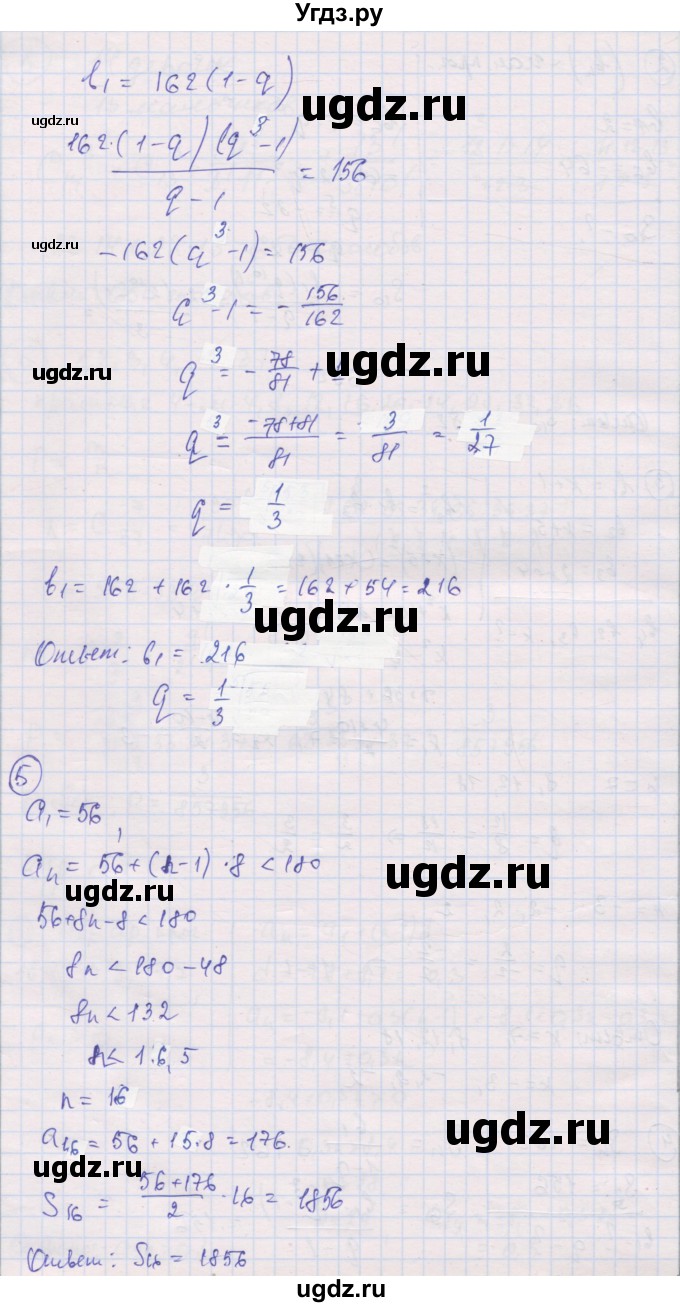 Угдз.ру
b₁ = 162(1-q)
ugdz.ru
ugdz.ru
162·(1-q)(q³-1)/(q-1) = 156
ugdz.ru
-162(q³-1) = 156
q³-1 = -156/162
ugdz.ru
ugdz.ru
q³ = -78/81 + 1
q³ = (-78+81)/81 = 3/81 = 1/27
q = 1/3
b₁ = 162 + 162 · 1/3 = 162 + 54 = 216
ugdz.ru
ugdz.ru
Ответ: b₁ = 216
q = 1/3
ugdz.ru
5
a₁ = 56
aₙ = 56 + (n-1)·8 < 180
ugdz.ru
ugdz.ru
56+8n-8 < 180
8n < 180-48
8n < 132
n < 16,5
n = 16
a₁₆ = 56 + 15·8 = 176.
ugdz.ru
ugdz.ru
S₁₆ = (56+176)/2 · 16 = 1856
Ответ: S₁₆ = 1856
ugdz.ru